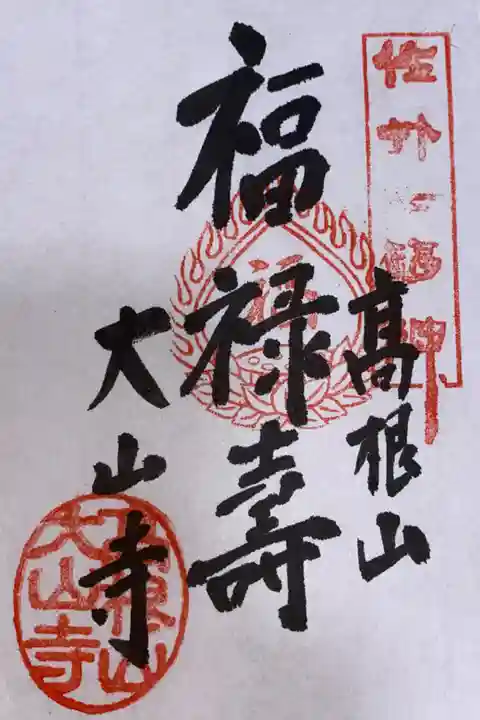 佐竹七福神
高根山
福禄壽
大山寺
高根山
大山寺